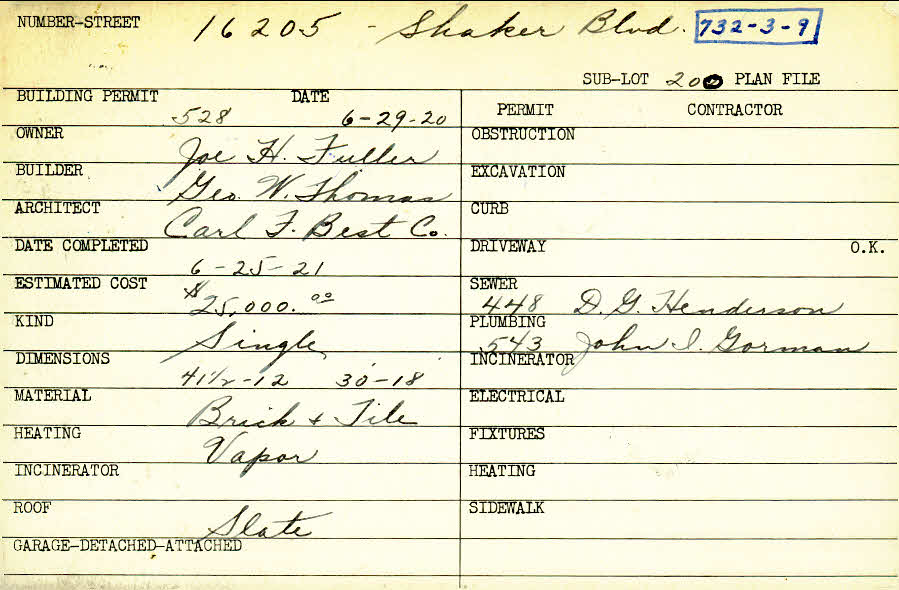 NUMBER-STREET 16205 - Shaker Blvd. 732-3-9
SUB-LOT 200 PLAN FILE
BUILDING PERMIT DATE
528 6-29-20
PERMIT CONTRACTOR
OWNER Joe H. Fuller
OBSTRUCTION
BUILDER Geo. W. Thomas
EXCAVATION
ARCHITECT Carl F. Best Co.
CURB
DATE COMPLETED
6-25-21
DRIVEWAY O.K.
ESTIMATED COST $25,000.00
SEWER
448 D. G. Henderson
KIND Single
PLUMBING
543 John I. Gorman
DIMENSIONS
41½-12 30-18
INCINERATOR
MATERIAL Brick + Tile
ELECTRICAL
HEATING Vapor
FIXTURES
INCINERATOR
HEATING
ROOF Slate
SIDEWALK
GARAGE-DETACHED-ATTACHED